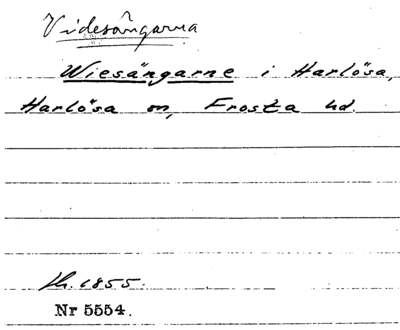 Videsångarna
Wiesängarne i Harlösa,
Harlösa sn, Frosta hd.
1855.
Nr 5554.